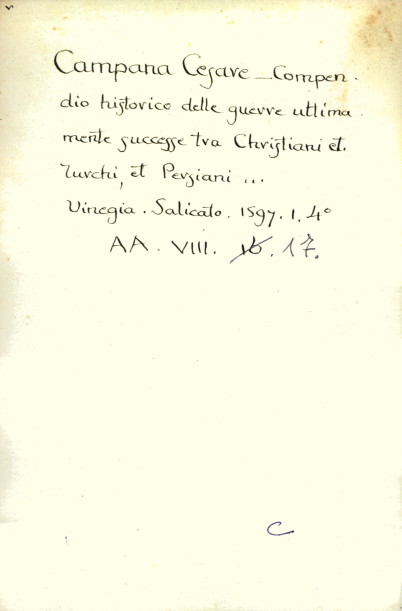 Campana Cesare — Compen
dio historico delle guerre ultima
mente successe tra Christiani et
Turchi, et Persiani ...
Vinegia . Salicato . 1597. 1. 4°
AA . VIII. 16. 17.
C